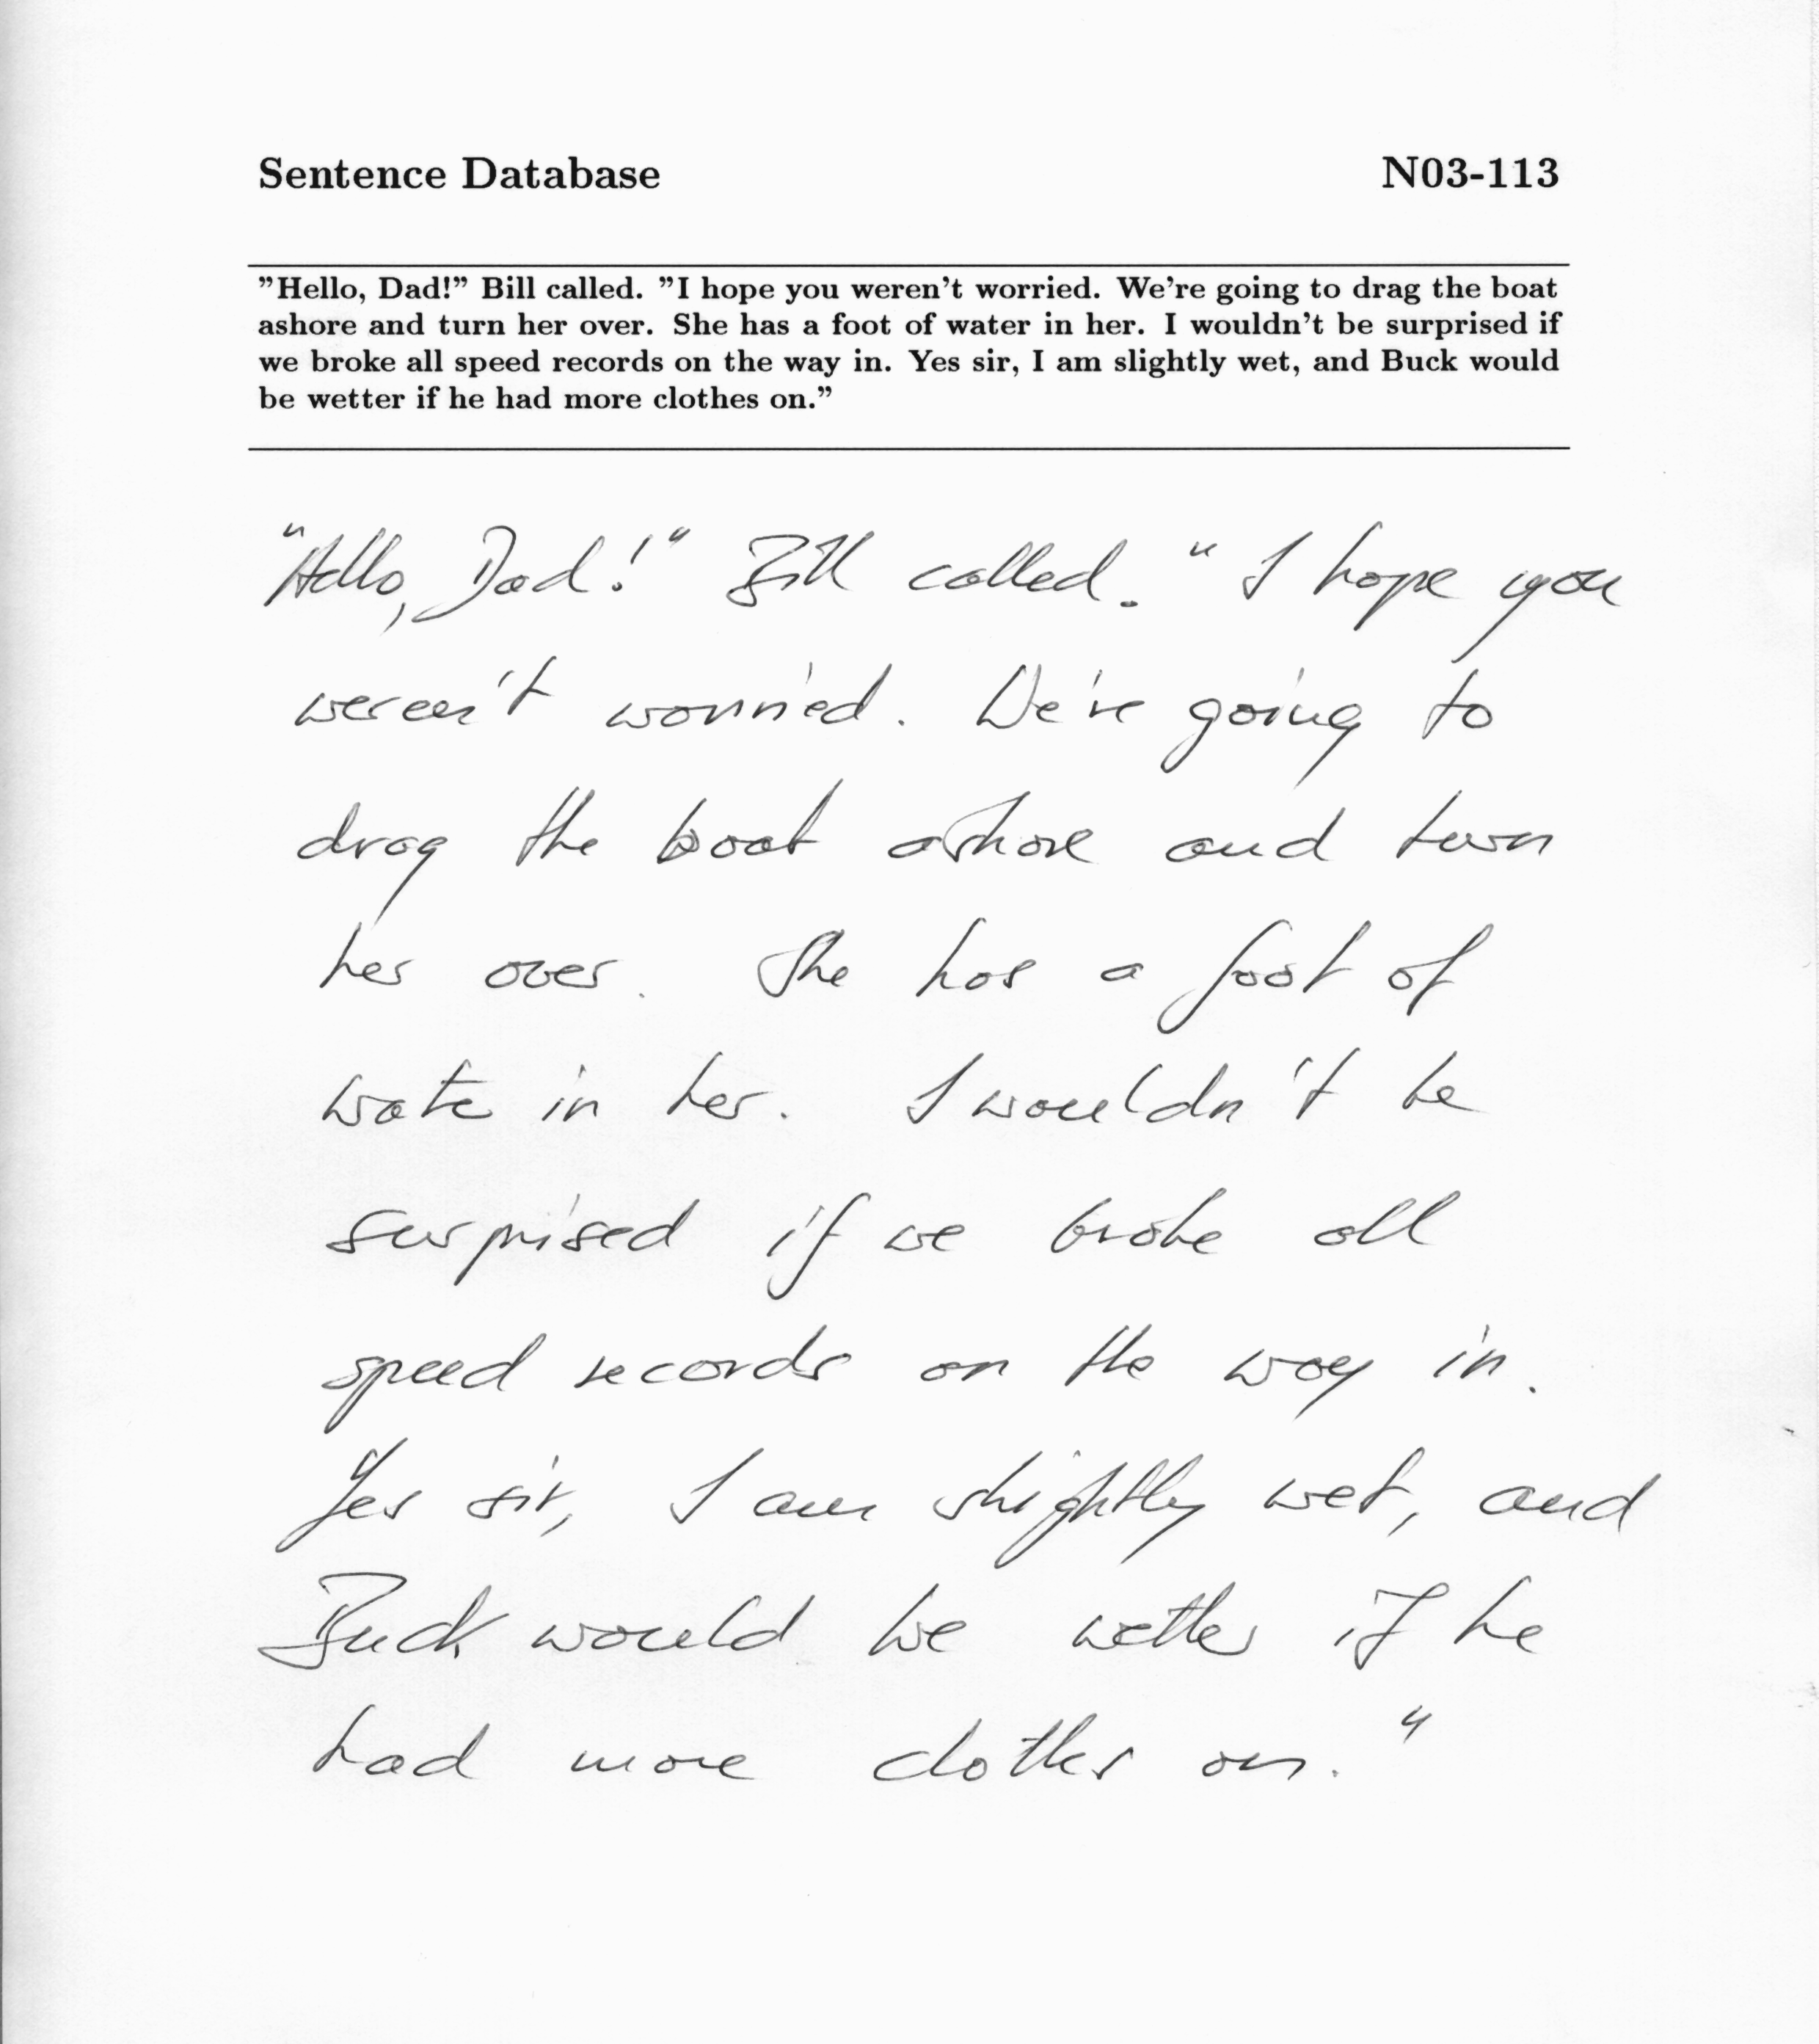 Sentence Database N03-113
"Hello, Dad!" Bill called. "I hope you weren't worried. We're going to drag the boat
ashore and turn her over. She has a foot of water in her. I wouldn't be surprised if
we broke all speed records on the way in. Yes sir, I am slightly wet, and Buck would
be wetter if he had more clothes on."
"Hello, Dad!" Bill called. "I hope you
weren't worried. We're going to
drag the boat ashore and turn
her over. She has a foot of
water in her. I wouldn't be
surprised if we broke all
speed records on the way in.
Yes sir, I am slightly wet, and
Buck would be wetter if he
had more clothes on."